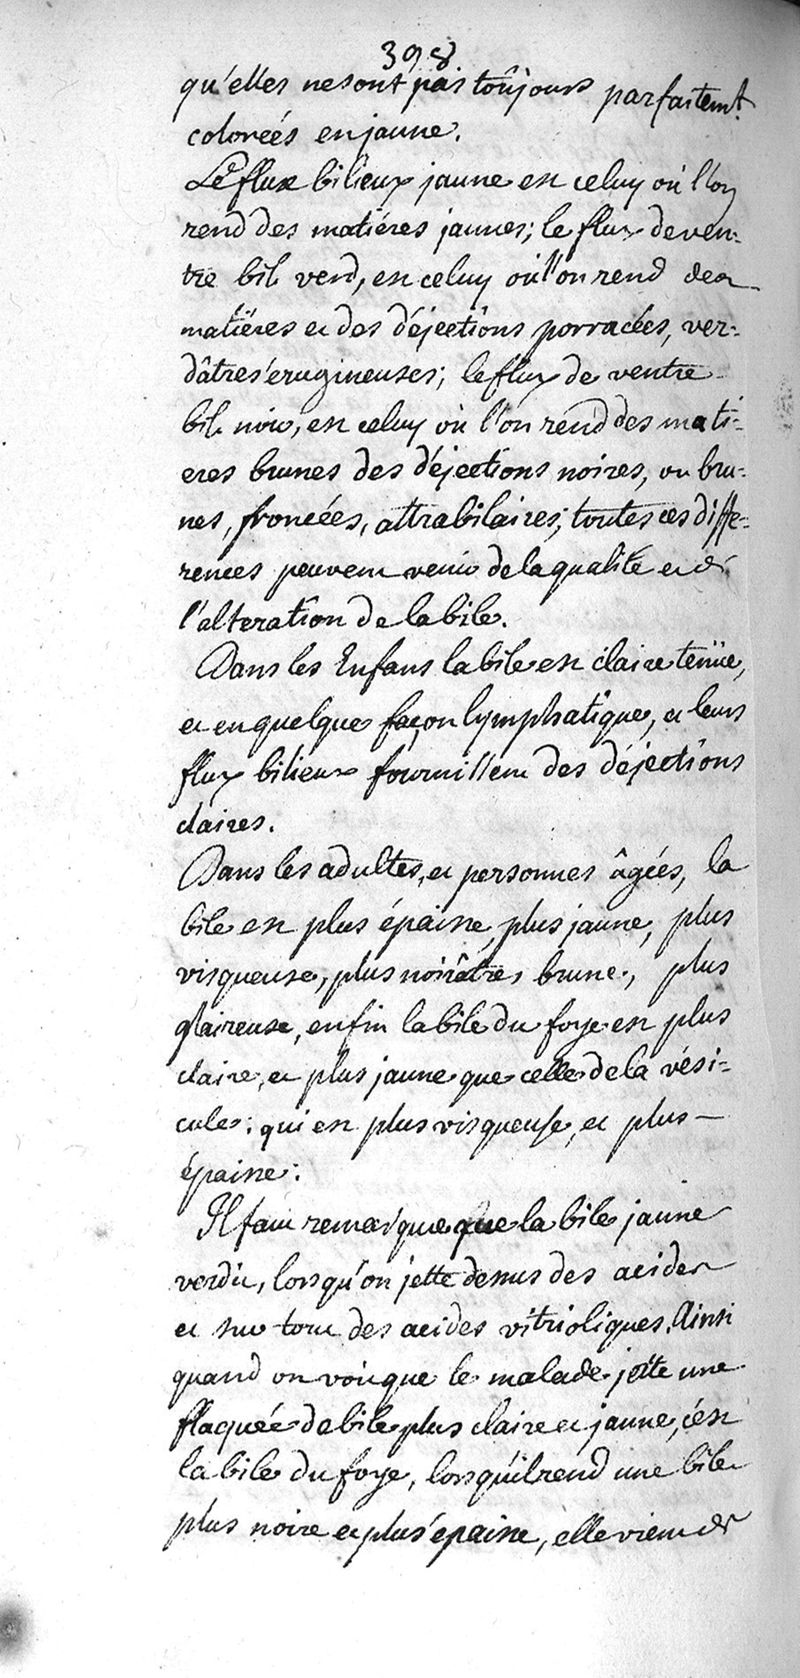 398
qu'elles ne sont pas toûjours parfaitemt.
colorées en jaune.
Le flux bilieux jaune est celuy où l'on
rend des matiéres jaunes; le flux de ven-
tre bil. verd, est celuy où l'on rend des
matiéres et des déjections porracées, ver-
dâtres érugineuses; le flux de ventre
bil. noir, est celuy où l'on rend des mati-
eres brunes des déjections noires, ou bru-
nes, froncées, attrabilaires; toutes ces diffe-
rences peuvent venir de la qualité et de
l'alteration de la bile.
Dans les Enfans la bile est claire tenüe,
et en quelque façon lymphatique, et leurs
flux bilieux fournissent des déjections
claires.
Dans les adultes, et personnes âgées, la
bile est plus épaisse, plus jaune, plus
visqueuse, plus noirâtre, brune, plus
glaireuse, enfin la bile du foye est plus
claire, et plus jaune que celle de la vési-
cule; qui est plus visqueuse, et plus
épaisse:
Il faut remarquer que la bile jaune
verdit, lorsqu'on jette dessus des acides
et sur tout des acides vitrioliques. Ainsi
quand on voit que le malade jette une
flaquée de bile plus claire et jaune, c'est
la bile du foye, lorsqu'il rend une bile
plus noire et plus épaisse, elle vient de